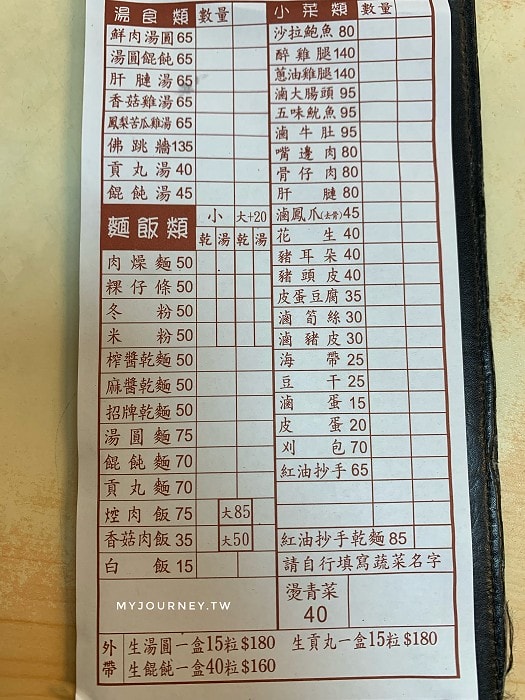 湯食類 數量
鮮肉湯圓 65
湯圓餛飩 65
肝腱湯 65
香菇雞湯 65
鳳梨苦瓜雞湯 65
佛跳牆 135
貢丸湯 40
餛飩湯 45
麵飯類 小 大+20
乾 湯 乾 湯
肉燥麵 50
粿仔條 50
冬粉 50
米粉 50
榨醬乾麵 50
麻醬乾麵 50
招牌乾麵 50
湯圓麵 75
餛飩麵 70
貢丸麵 70
焢肉飯 75 大85
香菇肉飯 35 大50
白飯 15
小菜類 數量
沙拉鮑魚 80
醉雞腿 140
蔥油雞腿 140
滷大腸頭 95
五味魷魚 95
滷牛肚 95
嘴邊肉 80
骨仔肉 80
肝腱 80
滷鳳爪(去骨) 45
花生 40
豬耳朵 40
豬頭皮 40
皮蛋豆腐 35
滷筍絲 30
滷豬皮 30
海帶 25
豆干 25
滷蛋 15
皮蛋 20
刈包 70
紅油抄手 65
紅油抄手乾麵 85
請自行填寫蔬菜名字
燙青菜
40
外帶
生湯圓一盒15粒$180 生貢丸一盒15粒$180
生餛飩一盒40粒$160
MYJOURNEY.TW